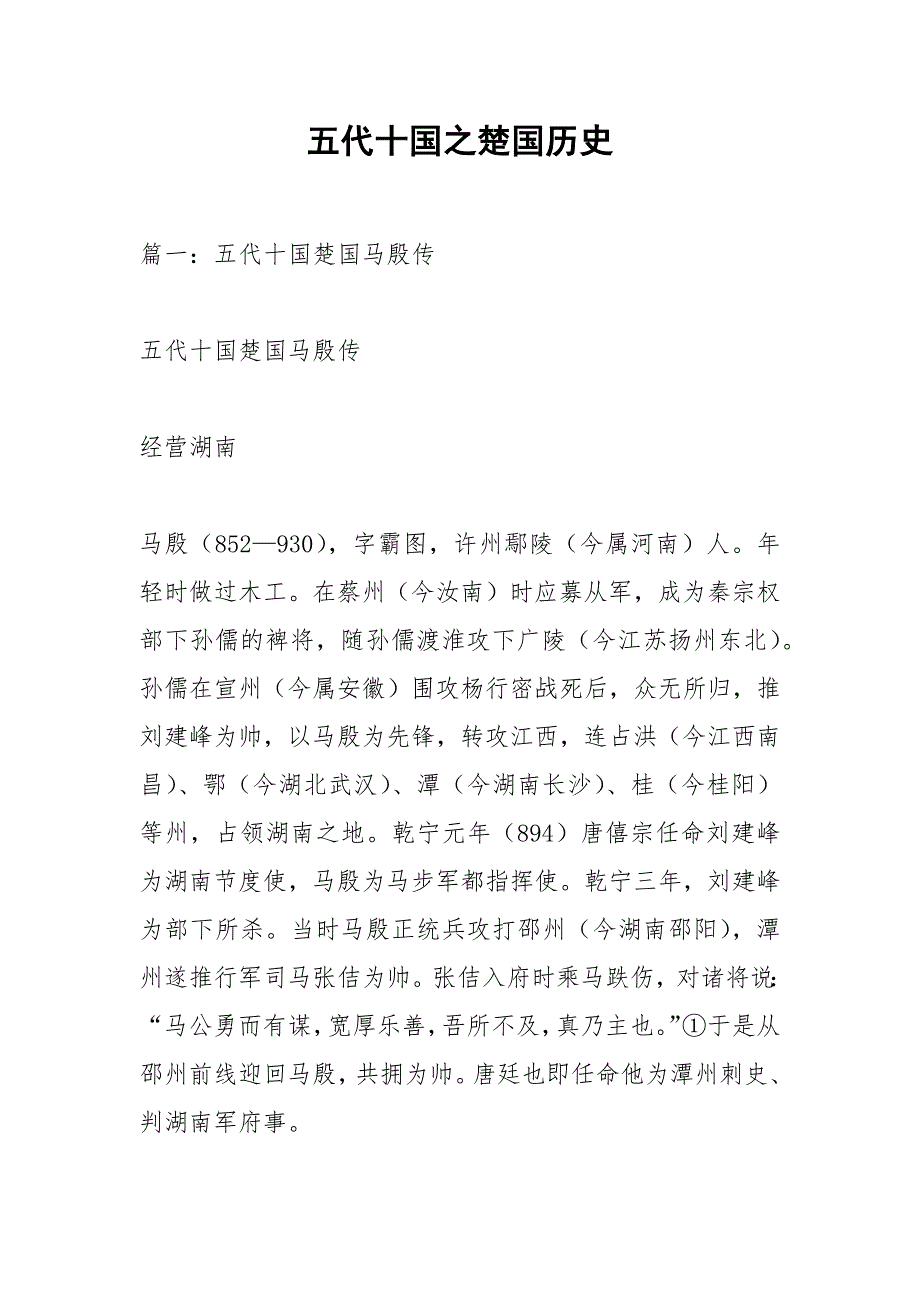 五代十国之楚国历史
篇一：五代十国楚国马殷传
五代十国楚国马殷传
经营湖南
马殷（852—930），字霸图，许州鄢陵（今属河南）人。年
轻时做过木工。在蔡州（今汝南）时应募从军，成为秦宗权
部下孙儒的裨将，随孙儒渡淮攻下广陵（今江苏扬州东北）。
孙儒在宣州（今属安徽）围攻杨行密战死后，众无所归，推
刘建峰为帅，以马殷为先锋，转攻江西，连占洪（今江西南
昌）、鄂（今湖北武汉）、潭（今湖南长沙）、桂（今桂阳）
等州，占领湖南之地。乾宁元年（894）唐僖宗任命刘建峰
为湖南节度使，马殷为马步军都指挥使。乾宁三年，刘建峰
为部下所杀。当时马殷正统兵攻打邵州（今湖南邵阳），潭
州遂推行军司马张佶为帅。张佶入府时乘马跌伤，对诸将说：
“马公勇而有谋，宽厚乐善，吾所不及，真乃主也。”①于是从
邵州前线迎回马殷，共拥为帅。唐廷也即任命他为潭州刺史、
判湖南军府事。